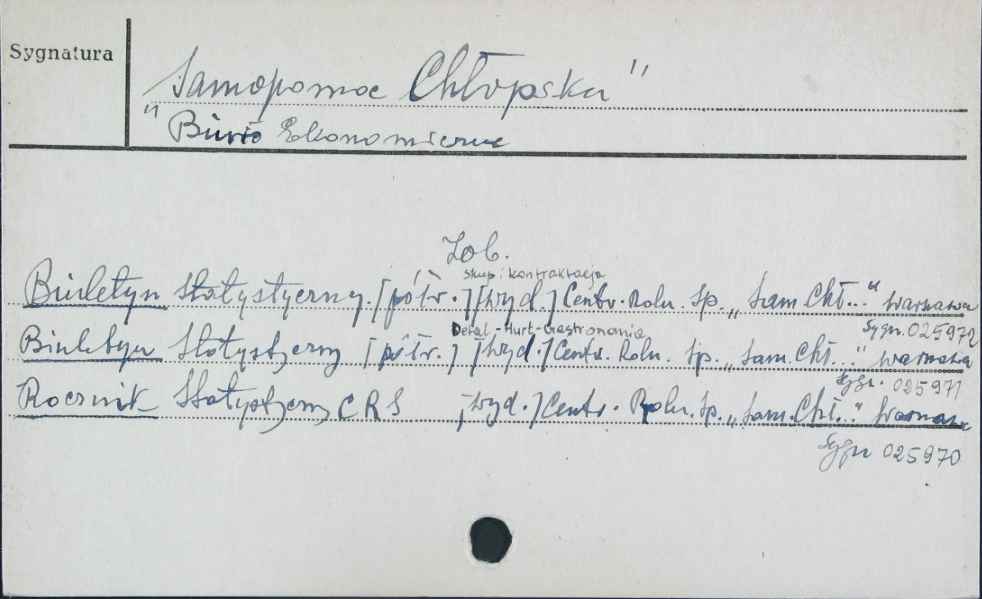 Sygnatura
"Samopomoc Chłopska"
Biuro Ekonomiczne
Zob.
Skup i kontraktacja
Biuletyn Statystyczny. [półr.] [wyd.] Centr. Roln. Sp. „Sam. Chł..." Warszawa
Sygn. 025972
Detal-Hurt-Gastronomia
Biuletyn Statystyczny [półr.] [wyd.] Centr. Roln. Sp. „Sam. Chł..." Warszawa
Sygn. 025971
Rocznik Statystyczny CRS [wyd.] Centr. Roln. Sp. „Sam. Chł..." Warszawa
Sygn 025970